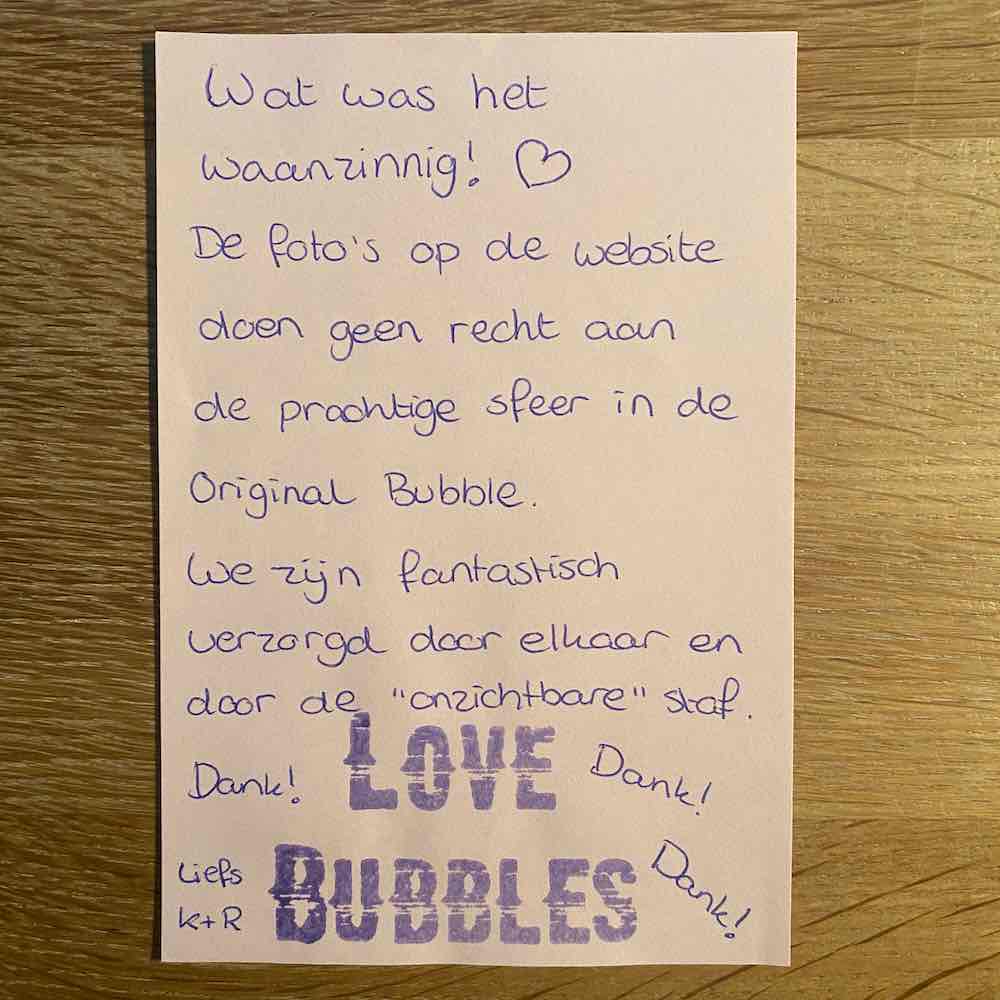 Wat was het
waanzinnig! ♡
De foto's op de website
doen geen recht aan
de prachtige sfeer in de
Original Bubble.
We zijn fantastisch
verzorgd door elkaar en
door de "onzichtbare" staf.
Dank! LOVE Dank!
Liefs BUBBLES Dank!
K+R